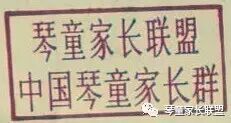 琴童家长联盟
中国琴童家长群
琴童家长联盟